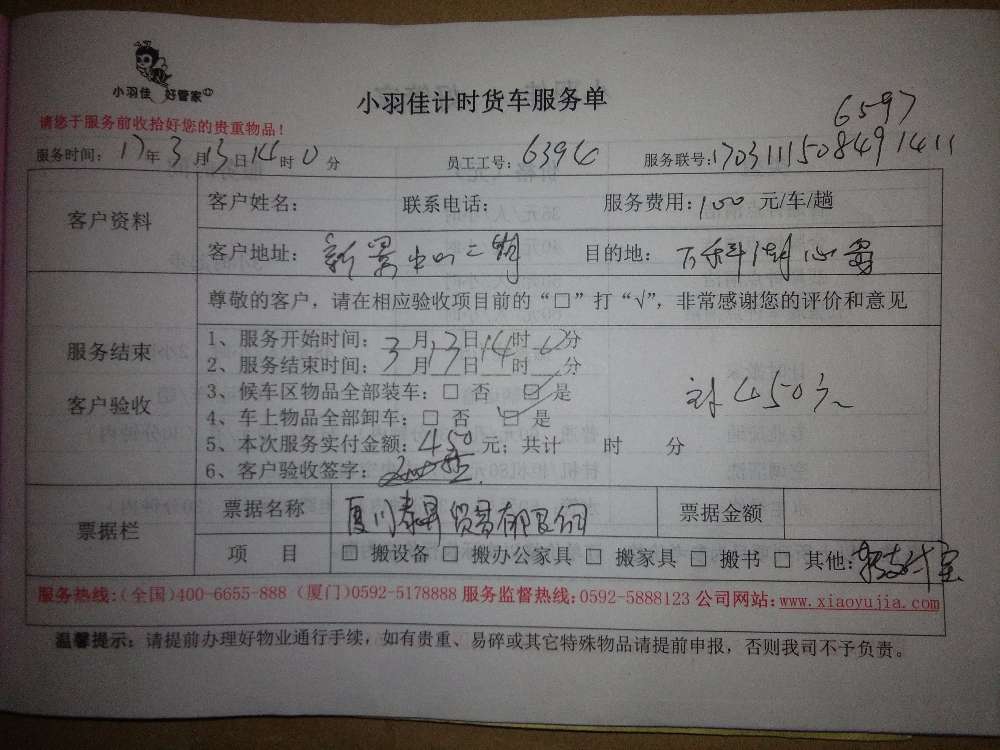 小羽佳 好管家
小羽佳计时货车服务单
请您于服务前收拾好您的贵重物品！
6597
服务时间：17年3月13日14时0分 员工工号：6394 服务联号：17031115084914 11
客户资料
客户姓名： 联系电话： 服务费用：100 元/车/趟
客户地址：新景中心二期 目的地：万科湖心岛
尊敬的客户，请在相应验收项目前的“□”打“√”，非常感谢您的评价和意见
服务结束
客户验收
1、服务开始时间：3月13日14时0分
2、服务结束时间：月 日 时 分
3、候车区物品全部装车：□ 否 □ 是
4、车上物品全部卸车：□ 否 □ 是
计450元
5、本次服务实付金额：450元；共计 时 分
6、客户验收签字：
票据栏
票据名称 厦门 贸易有限公司 票据金额
项 目 □ 搬设备 □ 搬办公家具 □ 搬家具 □ 搬书 □ 其他：支付宝
服务热线：（全国）400-6655-888（厦门）0592-5178888 服务监督热线：0592-5888123 公司网站：www.xiaoyujia.com
温馨提示：请提前办理好物业通行手续，如有贵重、易碎或其它特殊物品请提前申报，否则我司不予负责。